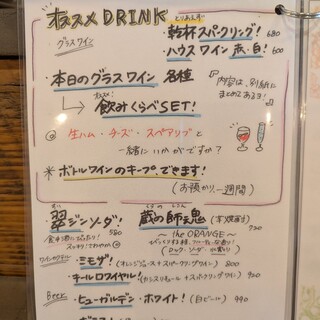 オススメ DRINK
とりあえず
グラスワイン
・乾杯スパークリング! 680
・ハウスワイン 赤・白! 600
・本日のグラスワイン 各種
→ 飲みくらべSET!
内容は、別紙に
まとめてあるヨ!
生ハム・チーズ・スペアリブと
一緒にいかがですか?
* ボトルワインのキープ、できます!
(お預かり、一週間)
・翠ジンソーダ! 580
・蔵の師魂 (芋焼酎) 720
〜 the ORANGE 〜
ワインカクテル
・ミモザ! (オレンジジュース+スパークリングワイン) 800
・キールロワイヤル! (カシスリキュール+スパークリングワイン) 920
Beer
・ヒューガルデン・ホワイト! (白ビール) 990